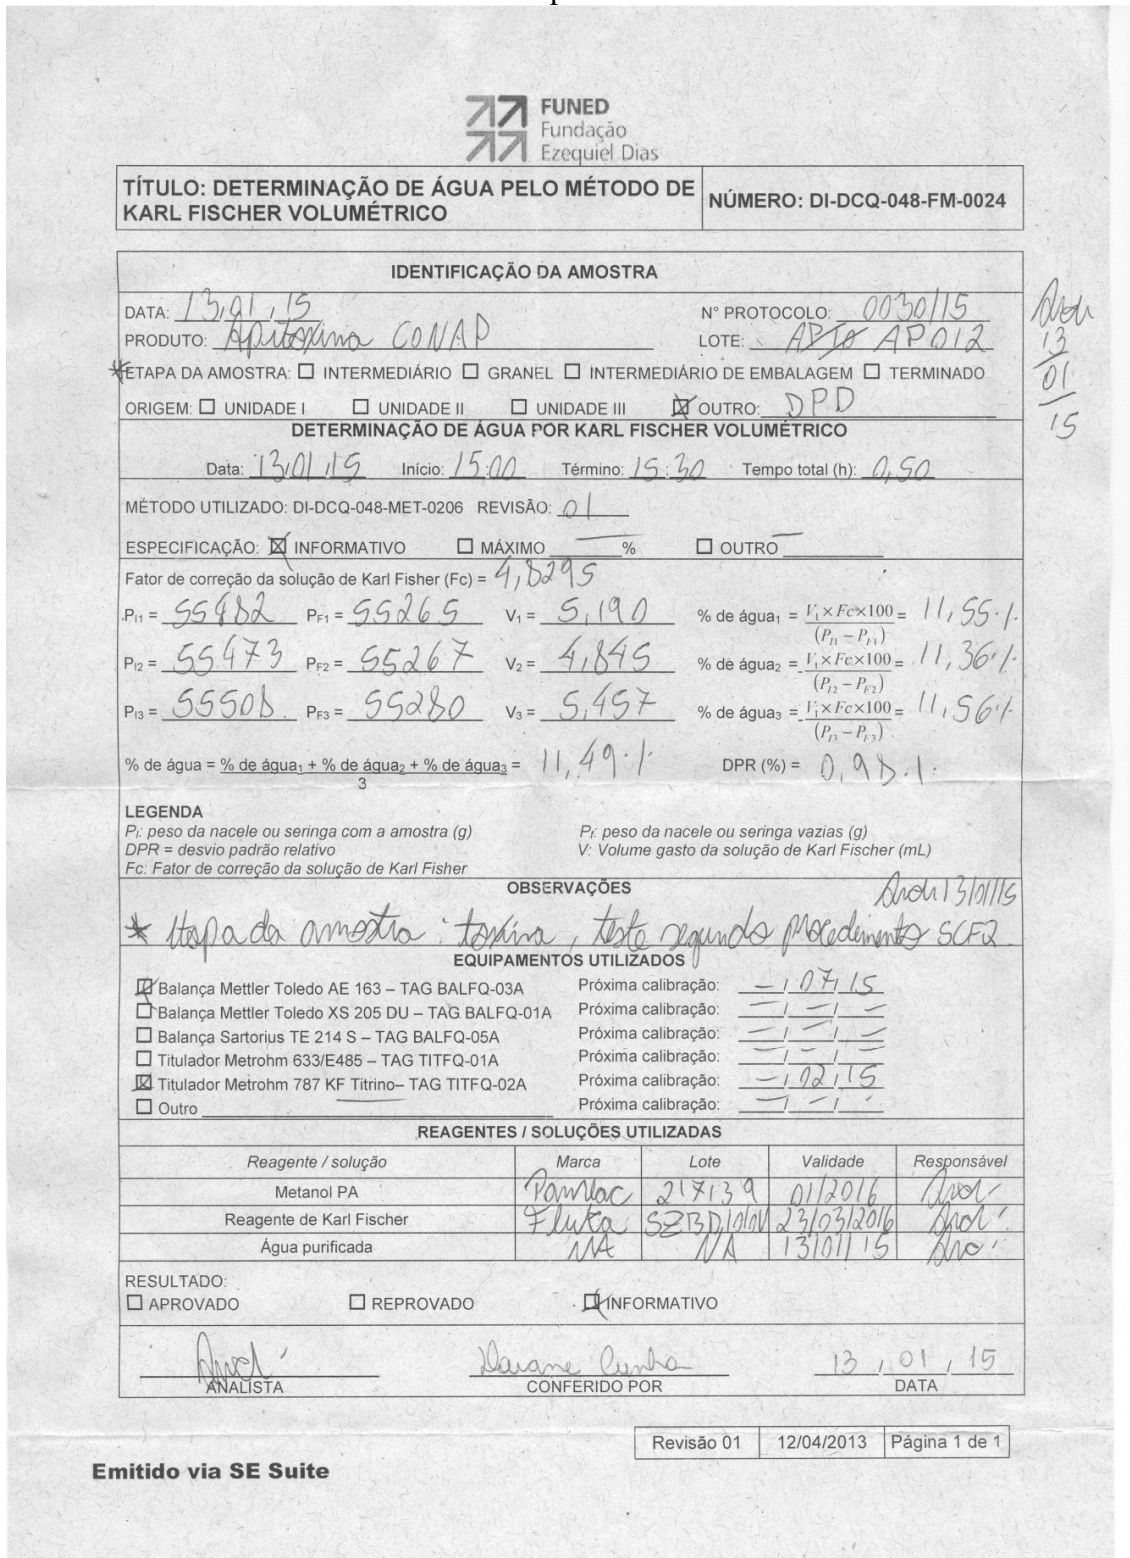 FUNED
Fundação
Ezequiel Dias
TÍTULO: DETERMINAÇÃO DE ÁGUA PELO MÉTODO DE KARL FISCHER VOLUMÉTRICO
NÚMERO: DI-DCQ-048-FM-0024
IDENTIFICAÇÃO DA AMOSTRA
DATA: 13,01,15 Nº PROTOCOLO: 0030/15
PRODUTO: Apitoxina CONAP LOTE: AP012
13
01
15
*ETAPA DA AMOSTRA: ☐ INTERMEDIÁRIO ☐ GRANEL ☐ INTERMEDIÁRIO DE EMBALAGEM ☐ TERMINADO
ORIGEM: ☐ UNIDADE I ☐ UNIDADE II ☐ UNIDADE III ☒ OUTRO: DPD
DETERMINAÇÃO DE ÁGUA POR KARL FISCHER VOLUMÉTRICO
Data: 13/01/15 Início: 15:00 Término: 15:30 Tempo total (h): 0,50
MÉTODO UTILIZADO: DI-DCQ-048-MET-0206 REVISÃO: 01
ESPECIFICAÇÃO: ☒ INFORMATIVO ☐ MÁXIMO ______% ☐ OUTRO ______
Fator de correção da solução de Karl Fisher (Fc) = 4,8295
PI1 = 55482 PF1 = 55265 V1 = 5,190 % de água1 = V1×Fc×100/(PI1 – PF1) = 11,55%
PI2 = 55473 PF2 = 55267 V2 = 4,845 % de água2 = V1×Fc×100/(PI2 – PF2) = 11,36%
PI3 = 55508 PF3 = 55280 V3 = 5,457 % de água3 = V1×Fc×100/(PI3 – PF3) = 11,56%
% de água = % de água1 + % de água2 + % de água3 = 11,49% DPR (%) = 0,98%
3
LEGENDA
Pi: peso da nacele ou seringa com a amostra (g) Pf: peso da nacele ou seringa vazias (g)
DPR = desvio padrão relativo V: Volume gasto da solução de Karl Fischer (mL)
Fc: Fator de correção da solução de Karl Fisher
OBSERVAÇÕES
13/01/15
* Etapa da amostra: toxina, teste segundo procedimento SCFQ
EQUIPAMENTOS UTILIZADOS
☒ Balança Mettler Toledo AE 163 – TAG BALFQ-03A Próxima calibração: –/07/15
☐ Balança Mettler Toledo XS 205 DU – TAG BALFQ-01A Próxima calibração: –/–/–
☐ Balança Sartorius TE 214 S – TAG BALFQ-05A Próxima calibração: –/–/–
☐ Titulador Metrohm 633/E485 – TAG TITFQ-01A Próxima calibração: –/–/–
☒ Titulador Metrohm 787 KF Titrino– TAG TITFQ-02A Próxima calibração: –/02/15
☐ Outro ______ Próxima calibração: –/–/–
REAGENTES / SOLUÇÕES UTILIZADAS
Reagente / solução Marca Lote Validade Responsável
Metanol PA 217139 01/2016
Reagente de Karl Fischer Fluka 23/03/2016
Água purificada NA NA 13/01/15
RESULTADO:
☐ APROVADO ☐ REPROVADO ☒ INFORMATIVO
Daiane Cunha 13/01/15
ANALISTA CONFERIDO POR DATA
Revisão 01 12/04/2013 Página 1 de 1
Emitido via SE Suite